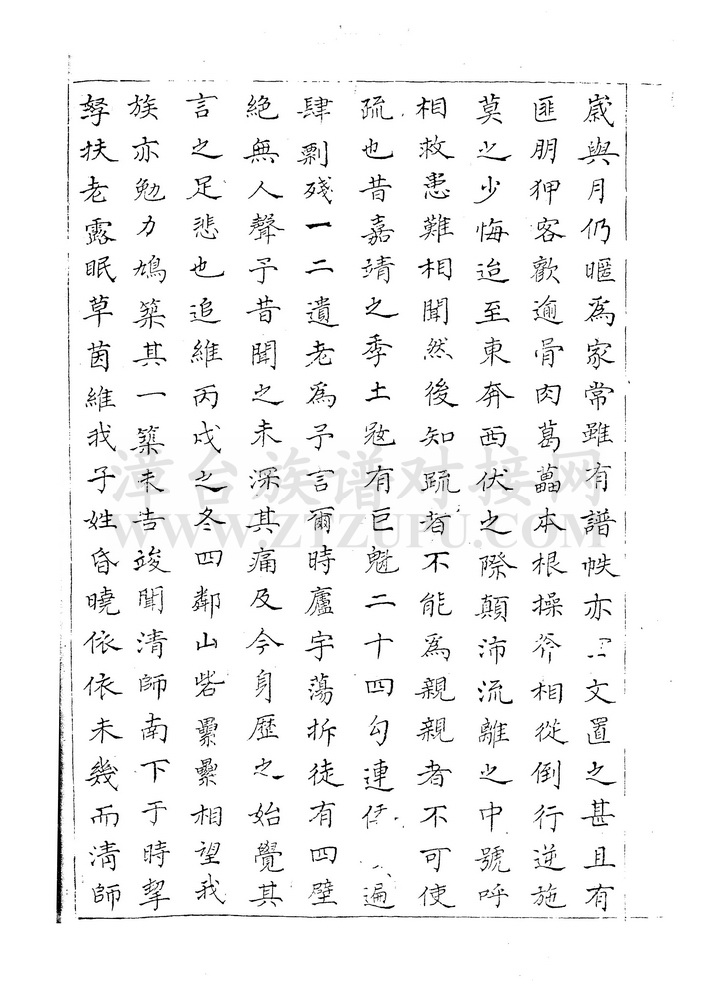 歲與月仍暱為家常雖有譜帙亦文置之甚且有
匪朋狎客歡逾骨肉葛藟本根操斧相從倒行逆施
莫之少悔迨至東奔西伏之際顛沛流離之中號呼
相救患難相聞然後知疏者不能為親親者不可使
疏也昔嘉靖之季土㓂有巨魁二十四勾連遍
肆剽殘一二遺老為予言爾時廬宇蕩拆徒有四壁
絕無人聲予昔聞之未深其痛及今身歷之始覺其
言之足悲也追維丙戌之冬四鄰山砦纍纍相望我
族亦勉力鳩築其一築未告竣聞清師南下于時挈
孥扶老露眠草茵維我子姓昏曉依依未幾而清師
漳台族谱对接网
WWW.ZTZUPU.COM